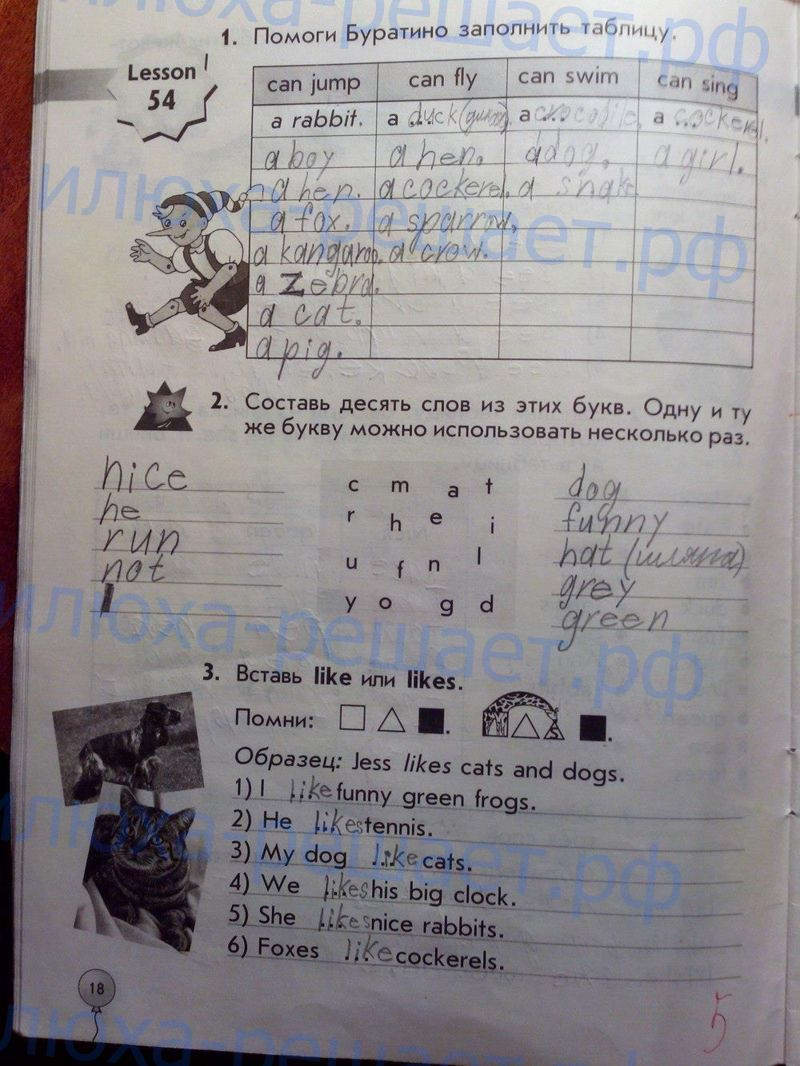 1. Помоги Буратино заполнить таблицу.
Lesson
54
can jump can fly can swim can sing
a rabbit. a duck a crocodile. a cockerel.
a boy a hen. a dog. a girl.
a hen. a cockerel. a snake
a fox. a sparrow.
a kangaroo. a crow.
a zebra.
a cat.
a pig.
2. Составь десять слов из этих букв. Одну и ту
же букву можно использовать несколько раз.
nice
he
run
not
c m a t
r h e i
u f n l
y o g d
dog
funny
hat (шляпа)
grey
green
3. Вставь like или likes.
Помни:
Образец: Jess likes cats and dogs.
1) I like funny green frogs.
2) He likes tennis.
3) My dog like cats.
4) We likes his big clock.
5) She likes nice rabbits.
6) Foxes like cockerels.
18
5
илюха-решает.рф
илюха-решает.рф
илюха-решает.рф
илюха-решает.рф
илюха-решает.рф